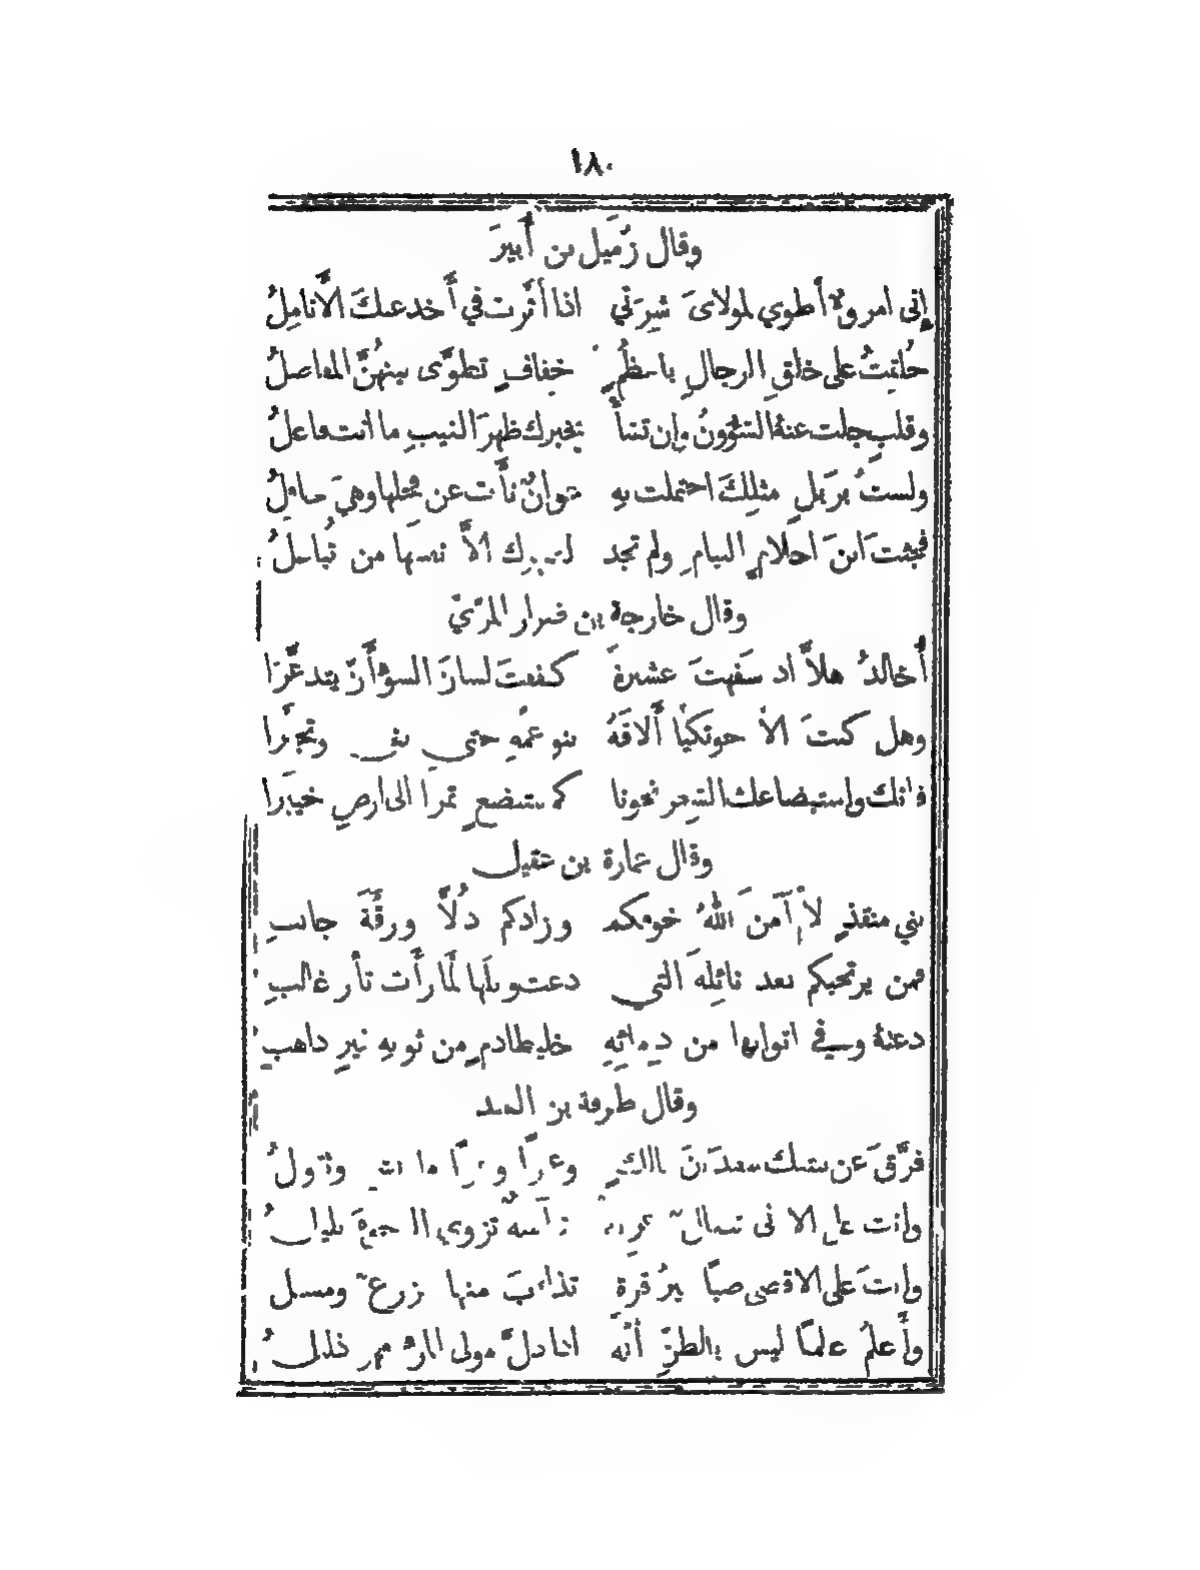 ١٨٠
وقال زُمَيل بن أُبيرَ
إني امرؤ لا أطوي لمولايَ شِرَتي اذا أثَّرت في أَخدعيكَ الأَناملُ
خُلقتُ على خلقِ الرجالِ باعظُمٍ خفافٍ تطوَّى بينهُنَّ المفاصلُ
وقلبٍ جلت عنهُ الشؤونُ وإن تشأْ يخبرك ظهرَ الغيبِ ما انت فاعلُ
ولستُ برَبلٍ مثلكَ احتملت بهِ عوانٌ نأَت عن فحلها وهيَ حائلُ
فجئتَ ابنَ احلامِ النيامِ ولم تجد لصهرك الاَّ نفسَها من تُباعلُ
وقال خارجة بن ضرار المرّيّ
أَخالدُ هلاَّ اذ سفهتَ عشيرةً كففتَ لسانَ السوءِ أَن يتدعَّرا
وهل كنتَ الاَّ حوتكيًا أَلاقَهُ بنو عمّهِ حتى وتجبَّرا
فانك واستبضاعك الشعر نحونا كمستبضعٍ تمرا الى ارض خيبَرا
وقال عمارة بن عقيل
بني منقذٍ لا آمنَ اللهُ خوفكم وزادكم ذُلاًّ ورقَّةَ جانبِ
فمن يرتجيكم بعد نائلةَ التي دعت ويلَها لمَّا رأَت ثأر غالبِ
دعتهُ وفي اثوابها من دمائهِ خليطا دمٍ من ثوبهِ غيرِ ذاهبِ
وقال طرفة بن العبد
فرَّقَ عن بيتيك سعدَ بنَ مالكٍ وعمرًا وما تشي وتقولُ
وانت على الادنى شمالٌ عريةٌ شآميةٌ تزوي الوجوهَ بليلُ
وانتَ على الاقصى صبًا غيرُ قرةٍ تذاءبَ منها مرزغٌ ومسيلُ
وأَعلمُ علمًا ليس بالظنِّ أنَّهُ اذا ذلَّ مولى المرءِ فهو ذليلُ